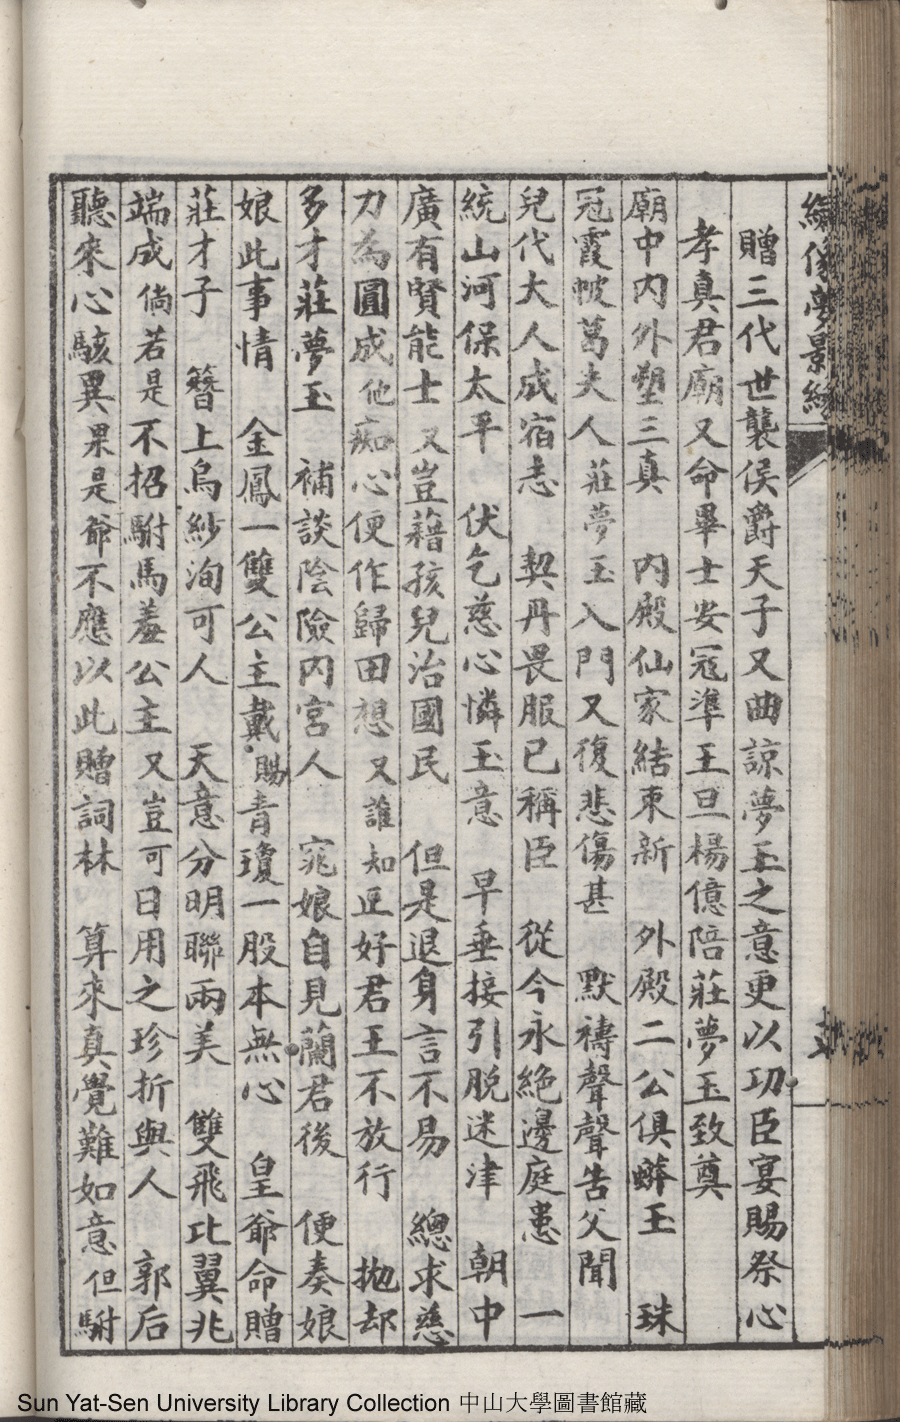 繡像夢影緣
贈三代世襲侯爵天子又曲諒夢玉之意更以功臣宴賜祭心
孝真君廟又命畢士安冠準王旦楊億陪莊夢玉致奠
廟中内外塑三真　内殿仙家結束新　外殿二公俱蟒玉　珠
冠霞帔葛夫人　莊夢玉入門又復悲傷甚　默禱聲聲告父聞
兒代大人成宿志　契丹畏服已稱臣　從今永絕邊庭患　一
統山河保太平　伏乞慈心憐玉意　早垂接引脱迷津　朝中
廣有賢能士　又豈藉孩兒治國民　但是退身言不易　總求慈
力為圓成　他痴心便作歸田想　又誰知正好君王不放行　抛却
多才莊夢玉　補談陰險内宮人　窕娘自見蘭君後　便奏娘
娘此事情　金鳳一雙公主戴　賜青瓊一股本無心　皇爺命贈
莊才子　簪上烏紗洵可人　天意分明聯兩美　雙飛比翼兆
端成　倘若是不招駙馬羞公主　又豈可日用之珍折與人　郭后
聽來心駭異　果是爺不應以此贈詞林　算來真覺難如意　但駙
Sun Yat-Sen University Library Collection 中山大學圖書館藏